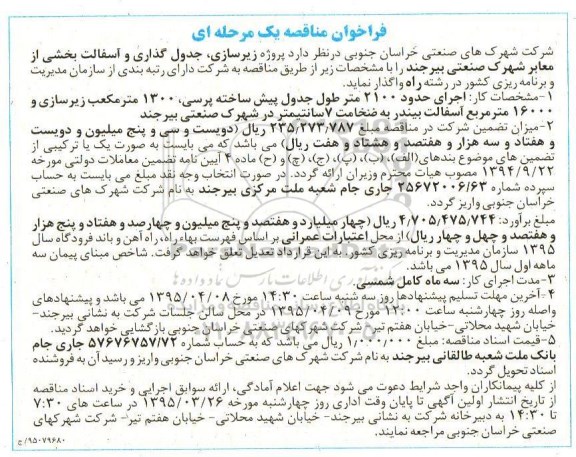 فراخوان مناقصه یک مرحله ای
شرکت شهرک های صنعتی خراسان جنوبی درنظر دارد پروژه زیرسازی، جدول گذاری و آسفالت بخشی از
معابر شهرک صنعتی بیرجند را با مشخصات زیر از طریق مناقصه به شرکت دارای رتبه بندی از سازمان مدیریت
و برنامه ریزی کشور در رشته راه واگذار نماید.
۱-مشخصات کار: اجرای حدود ۲۱۰۰ متر طول جدول پیش ساخته پرسی، ۱۳۰۰ مترمکعب زیرسازی و
۱۶۰۰۰ مترمربع آسفالت بیندر به ضخامت ۷سانتیمتر در شهرک صنعتی بیرجند
۲-میزان تضمین شرکت در مناقصه مبلغ ۲۳۵/۲۷۳/۷۸۷ ریال (دویست و سی و پنج میلیون و دویست
و هفتاد و سه هزار و هفتصد و هشتاد و هفت ریال) می باشد که می بایست به صورت یک یا ترکیبی از
تضمین های موضوع بندهای(الف)، (ب)، (پ)، (ج)، (چ) و (ح) ماده ۴ آیین نامه تضمین معاملات دولتی مورخه
۱۳۹۴/۹/۲۲ مصوب هیات محترم وزیران ارائه گردد. در صورت انتخاب وجه نقد مبلغ می بایست به حساب
سپرده شماره ۲۵۶۷۲۰۰۶/۶۳ جاری جام شعبه ملت مرکزی بیرجند به نام شرکت شهرک های صنعتی
خراسان جنوبی واریز گردد.
مبلغ برآورد: ۴/۷۰۵/۴۷۵/۷۴۴ ریال (چهار میلیارد و هفتصد و پنج میلیون و چهارصد و هفتاد و پنج هزار
و هفتصد و چهل و چهار ریال) از محل اعتبارات عمرانی بر اساس فهرست بهاء راه، راه آهن و باند فرودگاه سال
۱۳۹۵ سازمان مدیریت و برنامه ریزی کشور. به این قرارداد تعدیل تعلق خواهد گرفت. شاخص مبنای پیمان سه
ماهه اول سال ۱۳۹۵ می باشد.
۳-مدت اجرای کار: سه ماه کامل شمسی.
۴-آخرین مهلت تسلیم پیشنهادها روز سه شنبه ساعت ۱۴:۳۰ مورخ ۱۳۹۵/۰۴/۰۸ می باشد و پیشنهادهای
واصله روز چهارشنبه ساعت ۱۲:۰۰ مورخ ۱۳۹۵/۰۴/۰۹ در محل سالن جلسات شرکت به نشانی بیرجند-
خیابان شهید محلاتی-خیابان هفتم تیر- شرکت شهرکهای صنعتی خراسان جنوبی بازگشایی خواهد گردید.
۵-قیمت اسناد مناقصه: مبلغ ۱/۰۰۰/۰۰۰ ریال می باشد که به حساب شماره ۵۷۶۷۶۷۵۷/۷۲ جاری جام
بانک ملت شعبه طالقانی بیرجند به نام شرکت شهرک های صنعتی خراسان جنوبی واریز و رسید آن به فروشنده
اسناد تحویل گردد.
از کلیه پیمانکاران واجد شرایط دعوت می شود جهت اعلام آمادگی، ارائه سوابق اجرایی و خرید اسناد مناقصه
از تاریخ انتشار اولین آگهی تا پایان وقت اداری روز چهارشنبه مورخه ۱۳۹۵/۰۳/۲۶ در ساعت های ۷:۳۰
تا ۱۴:۳۰ به دبیرخانه شرکت به نشانی بیرجند- خیابان شهید محلاتی- خیابان هفتم تیر- شرکت شهرکهای
صنعتی خراسان جنوبی مراجعه نمایند.
۹۵۰۷۹۶۸۰/ج